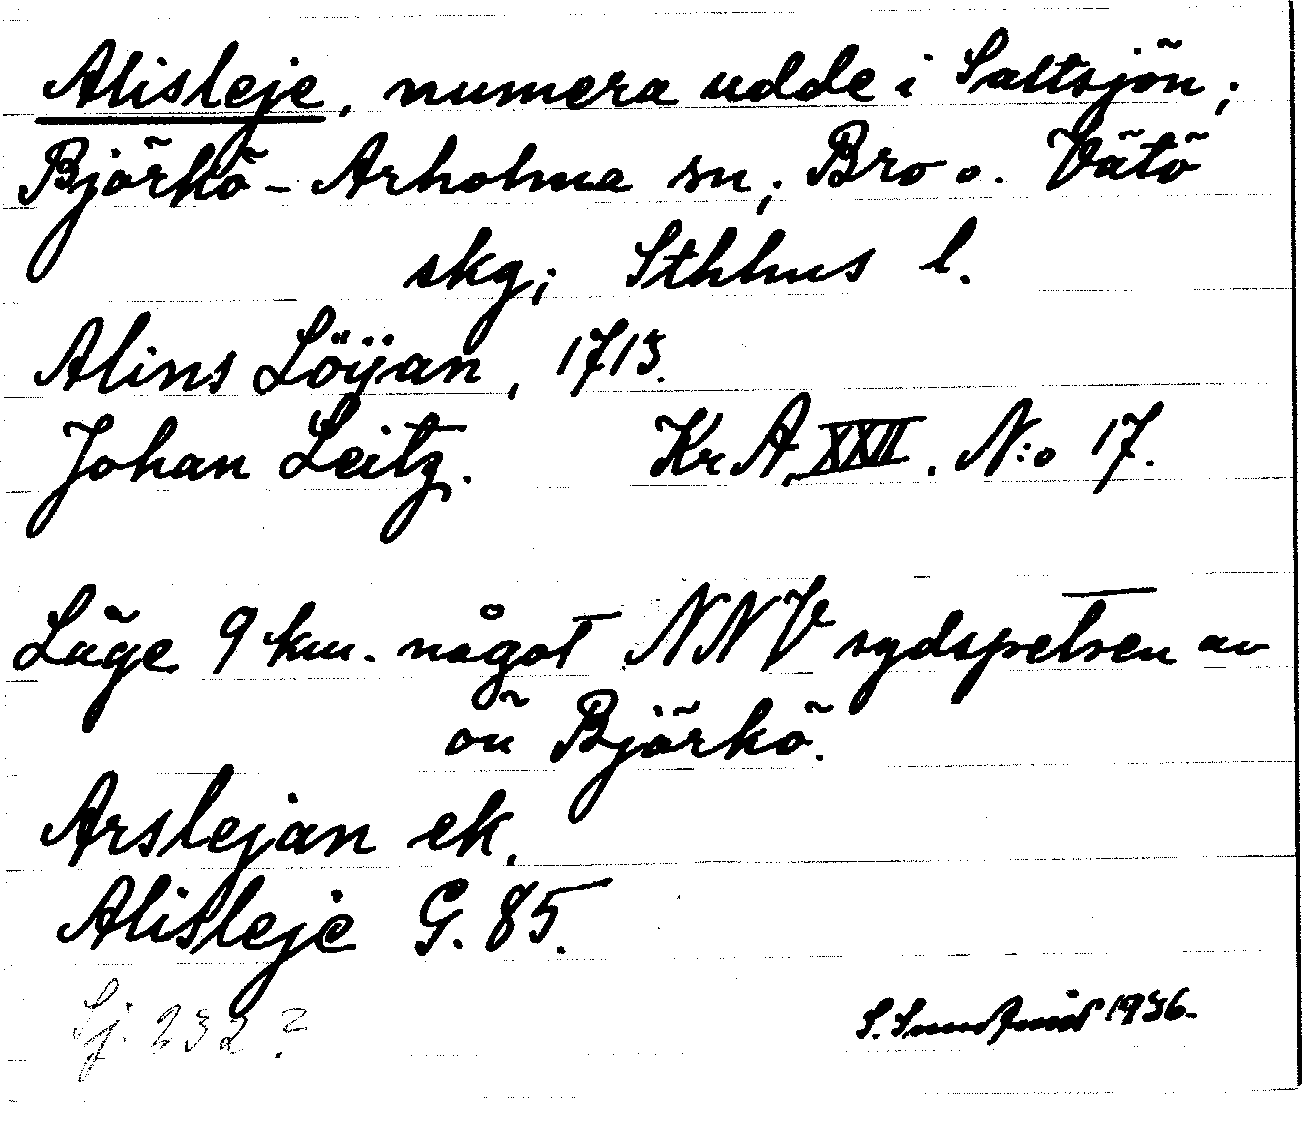 Alisleje, numera udde i Saltsjön;
Björkö-Arholma sn; Bro o. Vätö
skg; Sthlms l.
Alins Löÿan, 1713.
Johan Leitz. Kr A XXII. N:o 17.
Läge 9 km. något NNV sydspetsen av
ön Björkö.
Arslejan ek.
Alisleje G. 85.
Sj. 232?
S. 1936.